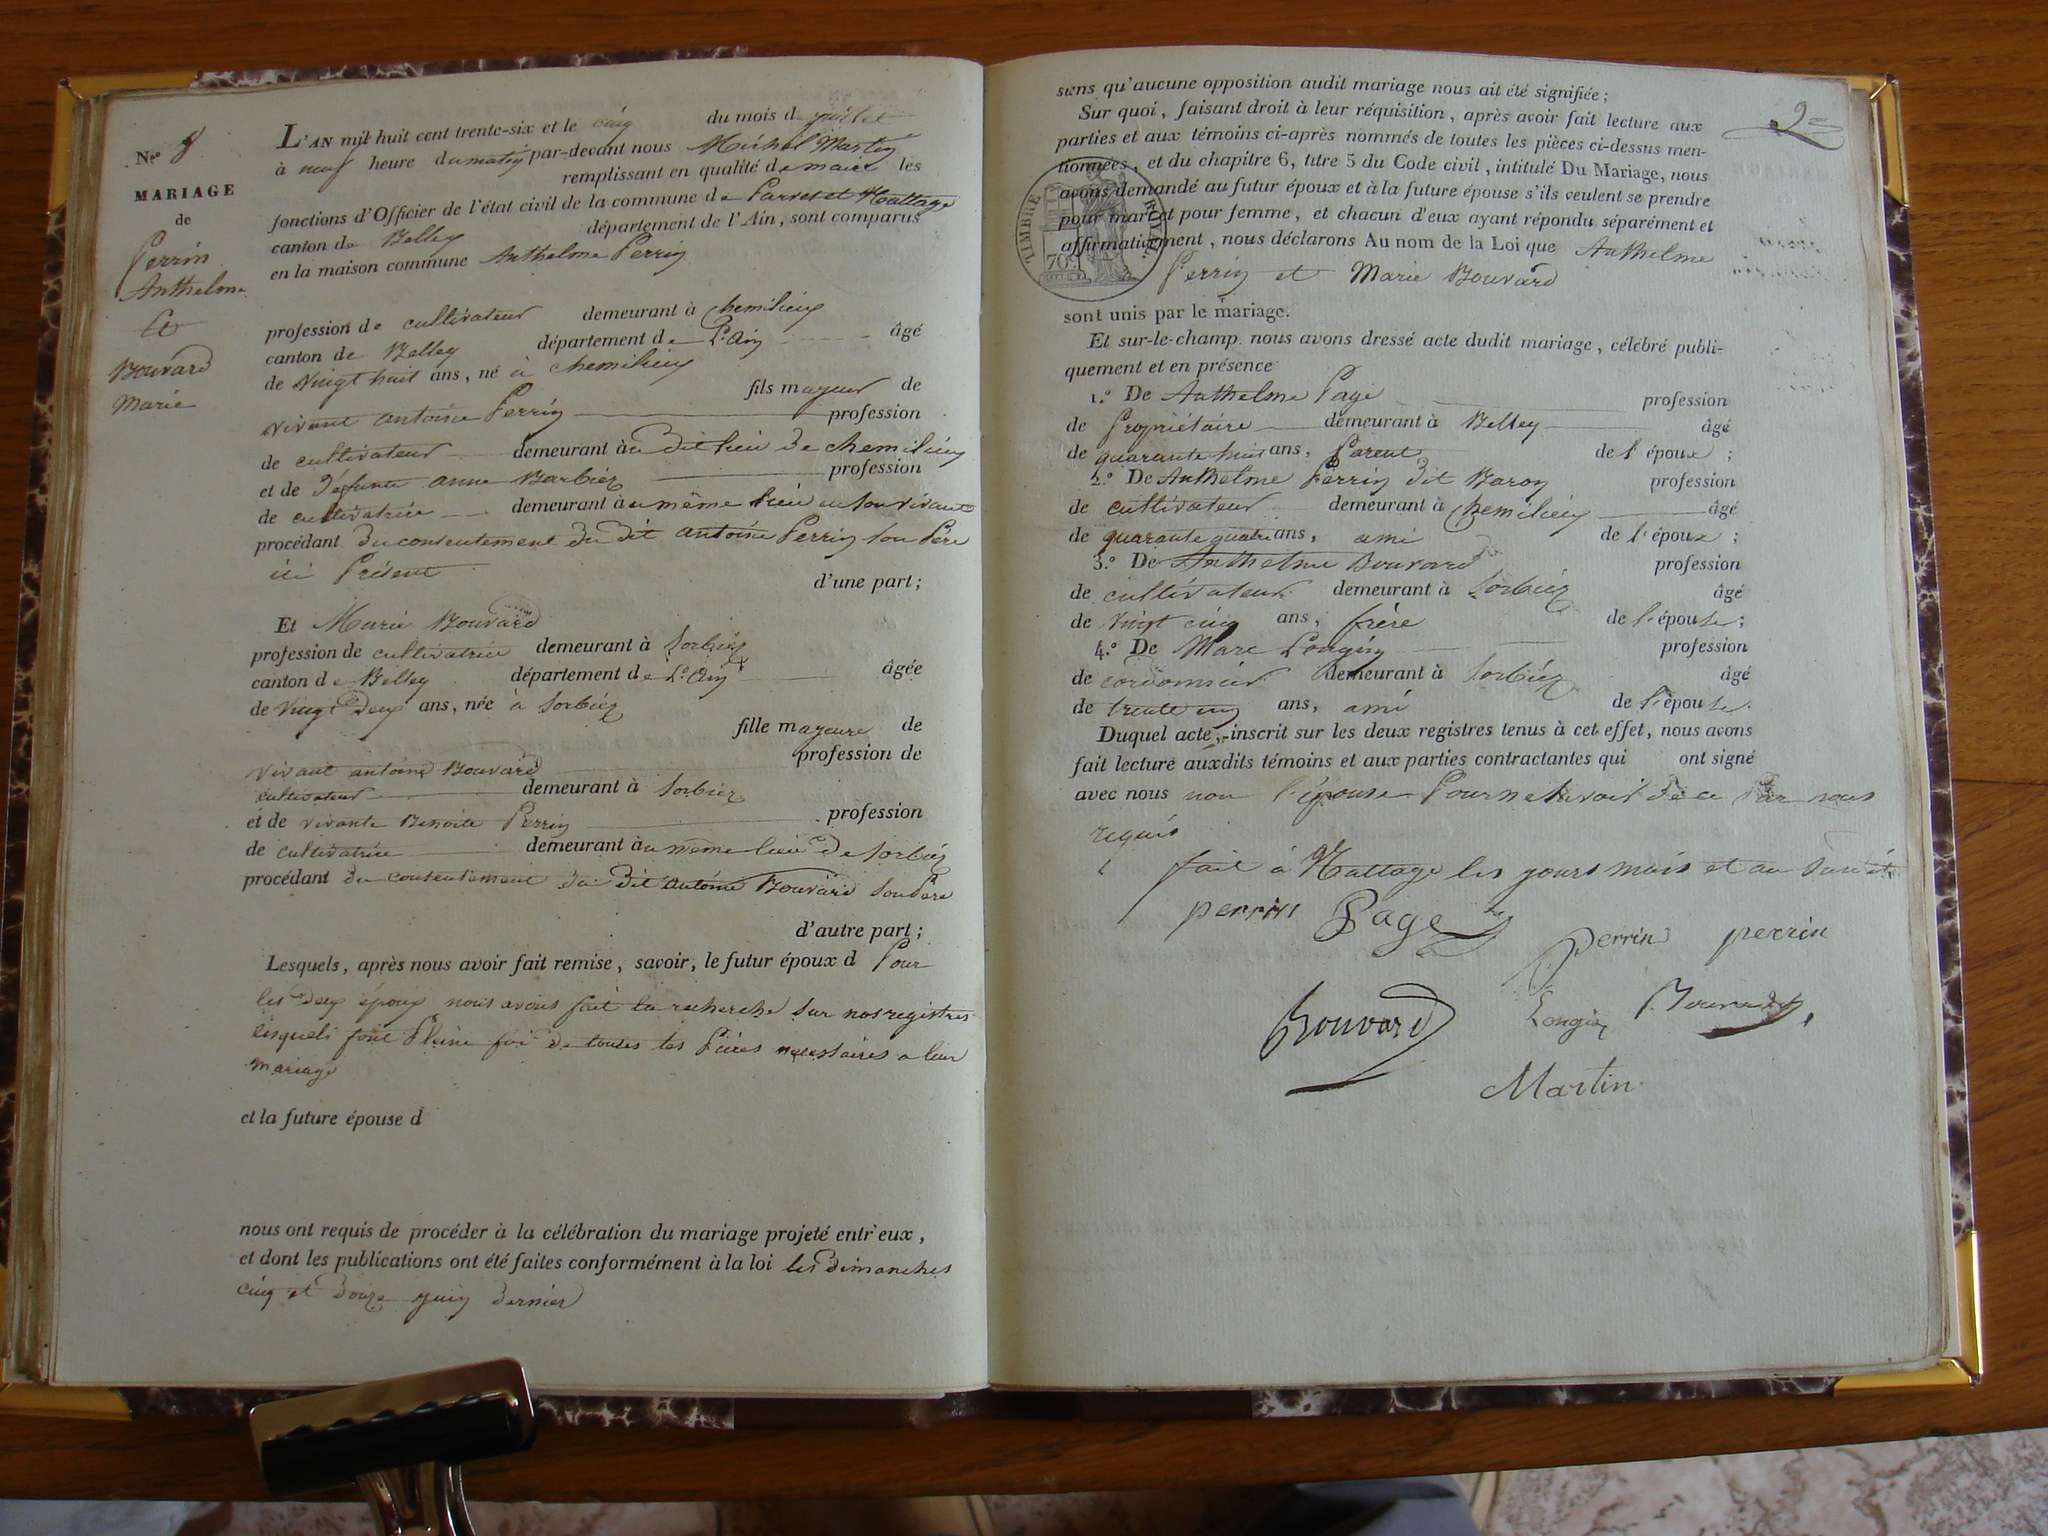 N.º 8
MARIAGE
de
Perrin
Anthelme
Et
Bouvard
Marie
L'AN mil huit cent trente-six et le cinq du mois d juillet
à neuf heure du matin par-devant nous Michel Martin
remplissant en qualité de maire les
fonctions d'Officier de l'état civil de la commune de Parves et Nattage
canton de Belley département de l'Ain, sont comparus
en la maison commune Anthelme Perrin
profession de cultivateur demeurant à Chemilieu
canton de Belley département de L'Ain âgé
de vingt huit ans, né à Chemilieu
fils mayeur de
vivant antoine Perrin profession
de cultivateur demeurant au dit lieu de Chemilieu
et de défunte anne Barbier profession
de cultivatrice demeurant au même lieu en son vivant
procédant du consentement du dit antoine Perrin son Père
ici Présent d'une part;
Et Marie Bouvard
profession de cultivatrice demeurant à Sorbiez
canton de Belley département de L'Ain âgée
de vingt deux ans, née à Sorbiez
fille mayeure de
vivant antoine Bouvard profession de
cultivateur demeurant à Sorbiez
et de vivante Benoite Perrin profession
de cultivatrice demeurant au même lieu de Sorbiez
procédant du consentement du dit antoine Bouvard son Père
d'autre part;
Lesquels, après nous avoir fait remise, savoir, le futur époux d Pour
les deux époux nous avons fait la recherche sur nos registres
lesquels font Pleine foi de toutes les Pièces necessaires a leur
mariage
et la future épouse d
nous ont requis de procéder à la célébration du mariage projeté entr'eux,
et dont les publications ont été faites conformément à la loi les dimanches
cinq et douze juin dernier
2
sans qu'aucune opposition audit mariage nous ait été signifiée;
Sur quoi, faisant droit à leur réquisition, après avoir fait lecture aux
parties et aux témoins ci-après nommés de toutes les pièces ci-dessus men-
tionnées, et du chapitre 6, titre 5 du Code civil, intitulé Du Mariage, nous
avons demandé au futur époux et à la future épouse s'ils veulent se prendre
pour mari et pour femme, et chacun d'eux ayant répondu séparément et
affirmativement, nous déclarons Au nom de la Loi que Anthelme
Perrin et Marie Bouvard
TIMBRE ROYAL
70
sont unis par le mariage.
Et sur-le-champ nous avons dressé acte dudit mariage, célébré publi-
quement et en présence
1.º De Anthelme Page profession
de Propriétaire demeurant à Belley âgé
de quarante huit ans, Parent de l'époux;
2.º De Anthelme Perrin dit Baron profession
de cultivateur demeurant à Chemilieu âgé
de quarante quatre ans, ami de l'époux;
3.º De Anthelme Bouvard profession
de cultivateur demeurant à Sorbiez âgé
de vingt cinq ans, frère de l'épouse;
4.º De Marc Longin profession
de cordonnier demeurant à Sorbiez âgé
de trente un ans, ami de l'épouse.
Duquel acte, inscrit sur les deux registres tenus à cet effet, nous avons
fait lecture auxdits témoins et aux parties contractantes qui ont signé
avec nous non l'épouse Pour ne savoir de ce Par nous
requis
fait à Nattage les jours mois et an susdit
perrin Page
Perrin perrin
Bouvard Longin Bouvard
Martin